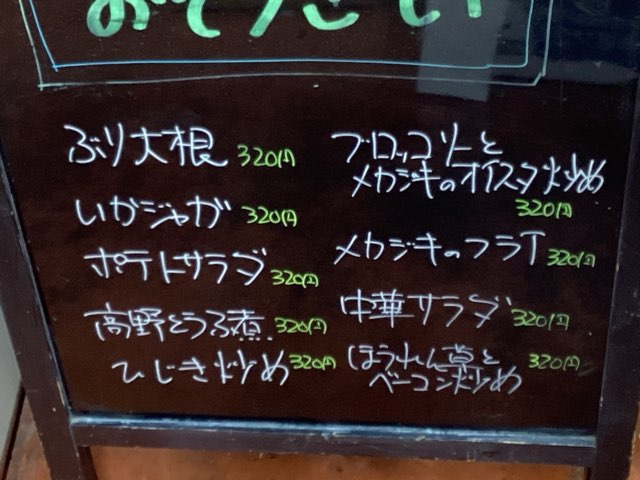 おそうざい
ぶり大根 320円
いかジャガ 320円
ポテトサラダ 320円
高野とうふ煮 320円
ひじき炒め 320円
ブロッコリーと
メカジキのオイスタ炒め
320円
メカジキのフライ 320円
中華サラダ 320円
ほうれん草と 320円
ベーコン炒め